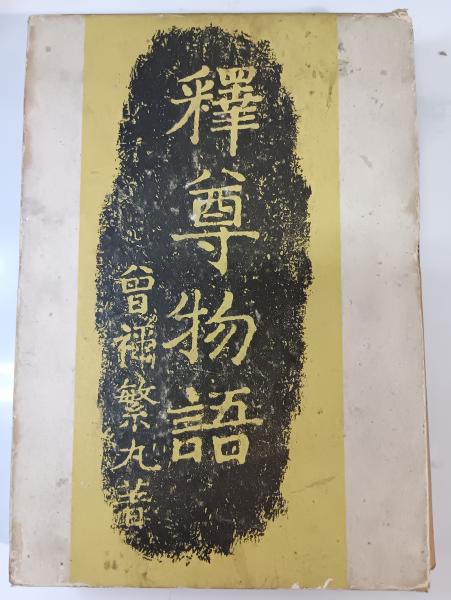 釋尊物語
曾禰繁丸著